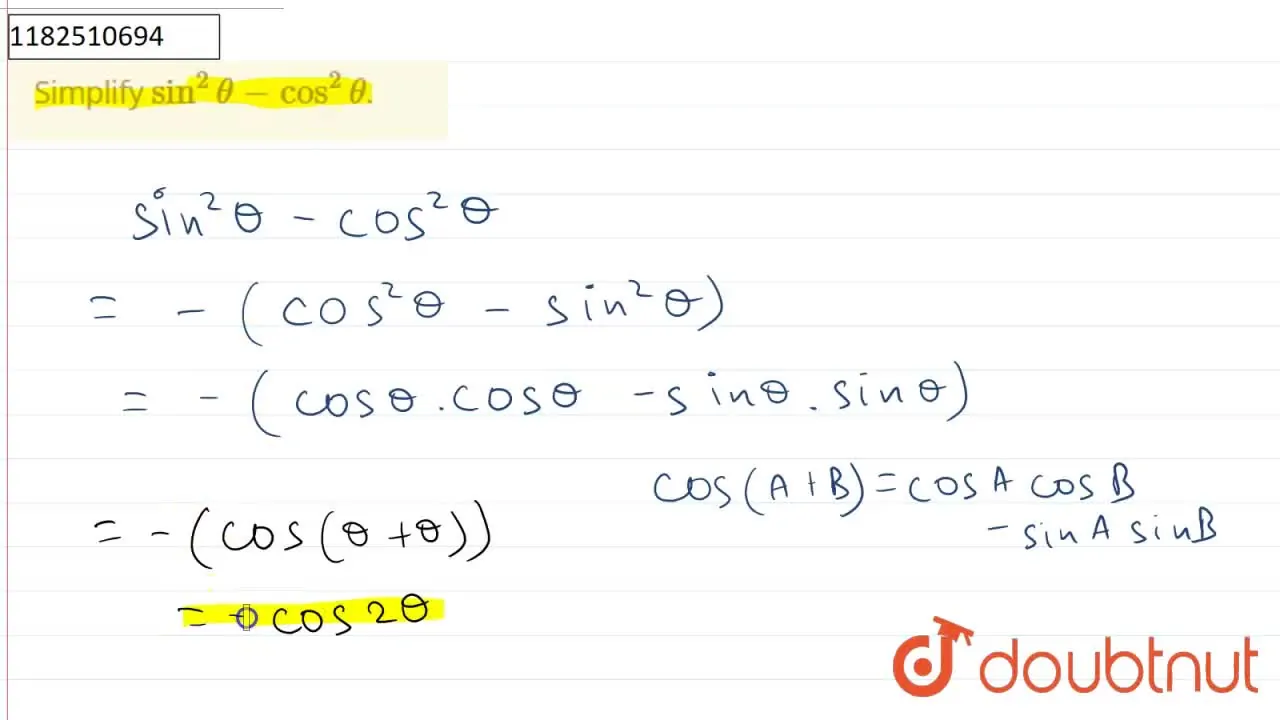 1182510694
Simplify sin² θ − cos² θ.
sin²θ - cos²θ
= - (cos²θ - sin²θ)
= - (cosθ.cosθ - sinθ.sinθ)
cos(A+B) = cosA cosB
- sinA sinB
= - (cos(θ+θ))
= - cos2θ
doubtnut